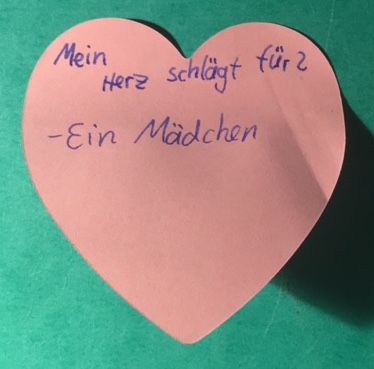 Mein
Herz schlägt für?
-Ein Mädchen